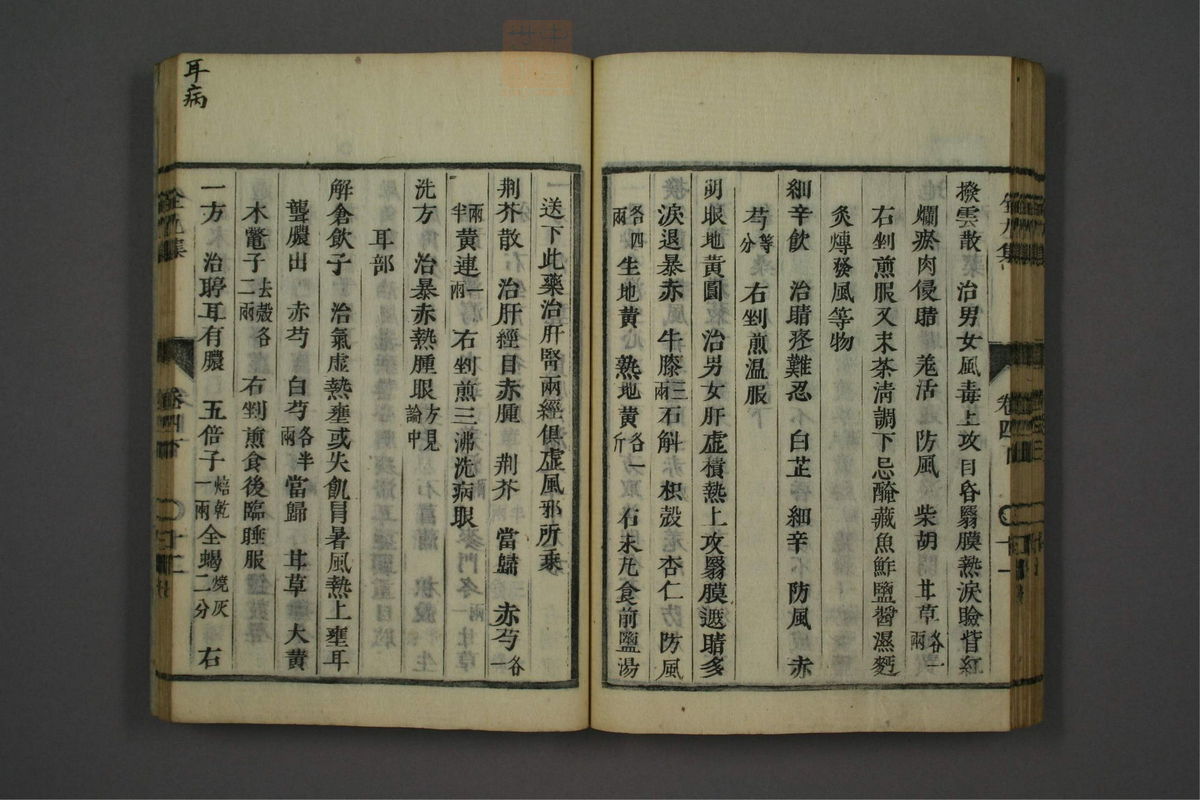 撥雲散 治男女風毒上攻目昏翳膜熱淚瞼眥紅
爛瘀肉侵睛 羗活 防風 柴胡 甘草各一兩
右剉煎服又末茶淸調下忌醃藏魚鮓鹽醬濕麪
灸煿發風等物
細辛飲 治睛疼難忍 白芷 細辛 防風 赤
芍等分 右剉煎温服
明眼地黃圓 治男女肝虛積熱上攻翳膜遮睛多
淚退暴赤 牛膝三兩 石斛 枳殼 杏仁 防風
各四兩 生地黃 熟地黃各一斤 右末丸食前鹽湯
送下此藥治肝腎兩經俱虛風邪所乘
荆芥散 治肝經目赤腫 荆芥 當歸 赤芍各一
兩半 黃連一兩 右剉煎三沸洗病眼
洗方 治暴赤熱腫眼方見論中
耳部
解倉飲子 治氣虛熱壅或失飢冐暑風熱上壅耳
聾膿出 赤芍 白芍各半兩 當歸 甘草 大黃
木鼈子二兩去殼各 右剉煎食後臨睡服
一方 治聤耳有膿 五倍子一兩焙乾 全蝎二分燒灰 右
卷四下
十二
耳病